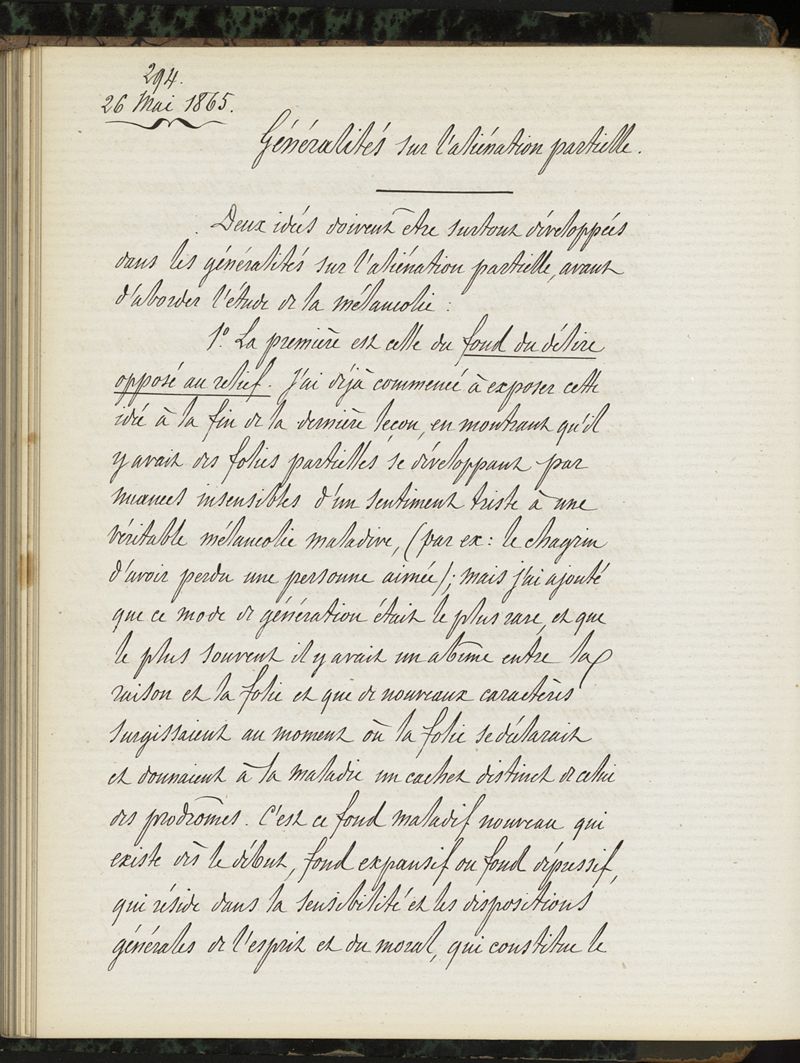 294.
26 Mai 1865.
Généralités sur l'aliénation partielle.
Deux idées doivent être surtout développées
dans les généralités sur l'aliénation partielle, avant
d'aborder l'étude de la mélancolie :
1º La première est celle du fond du délire
opposé au relief. J'ai déjà commencé à exposer cette
idée à la fin de la dernière leçon, en montrant qu'il
y avait des folies partielles se développant par
nuances insensibles d'un sentiment triste à une
véritable mélancolie maladive, (par ex : le chagrin
d'avoir perdu une personne aimée) ; mais j'ai ajouté
que ce mode de génération était le plus rare, et que
le plus souvent il y avait un abîme entre la
raison et la folie et que de nouveaux caractères
surgissaient au moment où la folie se déclarait
et donnaient à la maladie un cachet distinct de celui
des prodrômes. C'est ce fond maladif nouveau qui
existe dès le début, fond expansif ou fond dépressif,
qui réside dans la sensibilité et les dispositions
générales de l'esprit et du moral, qui constitue le